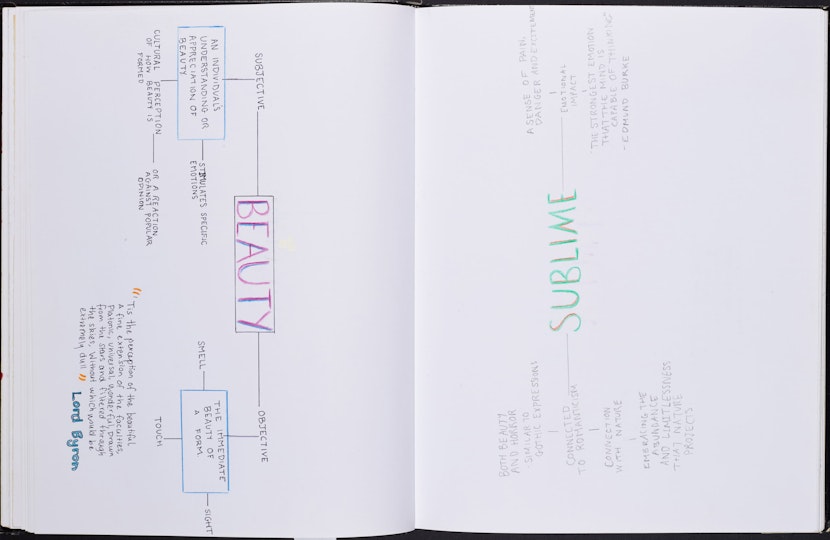 BEAUTY
SUBJECTIVE
AN INDIVIDUALS
UNDERSTANDING OR
APPRECIATION OF
BEAUTY
CULTURAL PERCEPTION
OF HOW BEAUTY IS
FORMED
OR A REACTION
AGAINST POPULAR
OPINION
STIMULATES SPECIFIC
EMOTIONS
OBJECTIVE
THE IMMEDIATE
BEAUTY OF
A FORM.
SMELL
TOUCH
SIGHT
"'Tis the perception of the beautiful,
A fine extension of the faculties,
Platonic, universal, wonderful, Drawn
from the stars and filtered through
the skies, Without which would be
extremely dull"
Lord Byron
SUBLIME
EMOTIONAL
IMPACT
A SENSE OF PAIN,
DANGER AND EXCITEMENT
"THE STRONGEST EMOTION
THAT THE MIND IS
CAPABLE OF THINKING"
- EDMUND BURKE
CONNECTED
TO ROMANTICISM
BOTH BEAUTY
AND HORROR
SIMILAR TO
GOTHIC EXPRESSIONS
CONNECTION
WITH NATURE
EMBRACING THE
ABUNDANCE
AND LIMITLESSNESS
THAT NATURE
PROJECTS